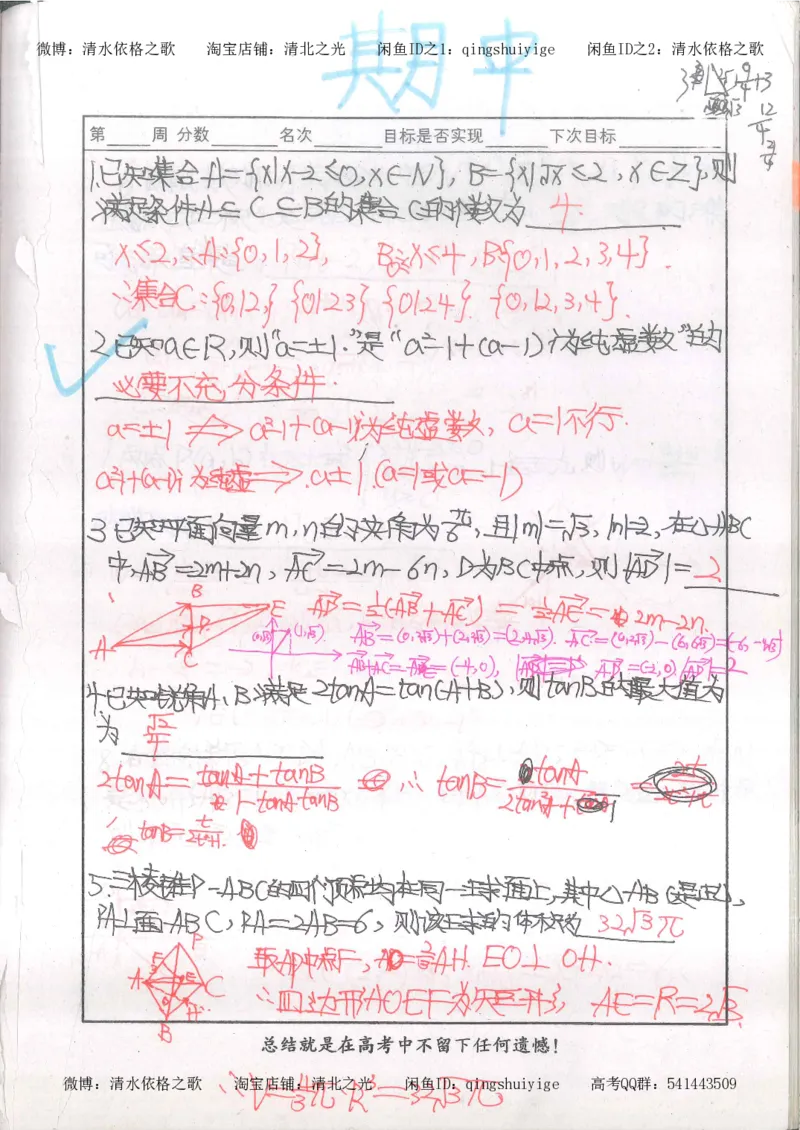 微博：清水依格之歌 淘宝店铺：清北之光 闲鱼ID之1：qingshuiyige 闲鱼ID之2：清水依格之歌
期中
第____周 分数______名次______目标是否实现______下次目标______
1.已知集合A={x|x-2≤0,x∈N}，B={x|√x≤2，x∈Z},则
满足条件A⊆C⊆B的集合C的个数为 4.
x≤2,∴A:{0,1,2}, B:0≤x≤4,B{0,1,2,3,4}.
∴集合C:{0,1,2,} {0123} {0124} {0,1,2,3,4}.
2.已知a∈R,则"a=±1."是"a²-1+(a-1)i为纯虚数"的
必要不充分条件.
a=±1 ⇏ a²-1+(a-1)i为纯虚数, a=1不行.
a²-1+(a-1)i为纯虚⇒a±1.(a=1或a=-1)
3.已知平面向量m,n的夹角为π/6,且|m|=√3,|n|=2,在△ABC
中,AB=2m+2n,AC=2m-6n,D为BC中点,则|AD|= 2
B E AD=½(AB+AC)=½AE=2m-2n.
A D C (0,√3) (1,√3) AB=(0,2√3)+(2,2√3)=(2,4√3). AC=(0,2√3)-(6,6√3)=(-6,-4√3)
AB+AC=AE=(-4,0), AD=(-2,0) |AD|=2
4.已知锐角A、B满足2tanA=tan(A+B),则tanB的最大值为
为 √2/4
2tanA=tanA+tanB/1-tanA·tanB ∴tanB=tanA/2tan²A+1
∴tanB=t/2t²+1.
5.三棱锥P-ABC的四个顶点均在同一球面上,其中△ABC是正△,
PA⊥面ABC,PA=2AB=6,则该球的体积为 32√3π
P F E A C O H B 取AP中点F,AO=⅔AH. EO⊥OH.
∴四边形AOEF为矩形, AE=R=2√3.
总结就是在高考中不留下任何遗憾！
微博：清水依格之歌 淘宝店铺：清北之光 闲鱼ID：qingshuiyige 高考QQ群：541443509
∴V=4/3π·R³=32√3π